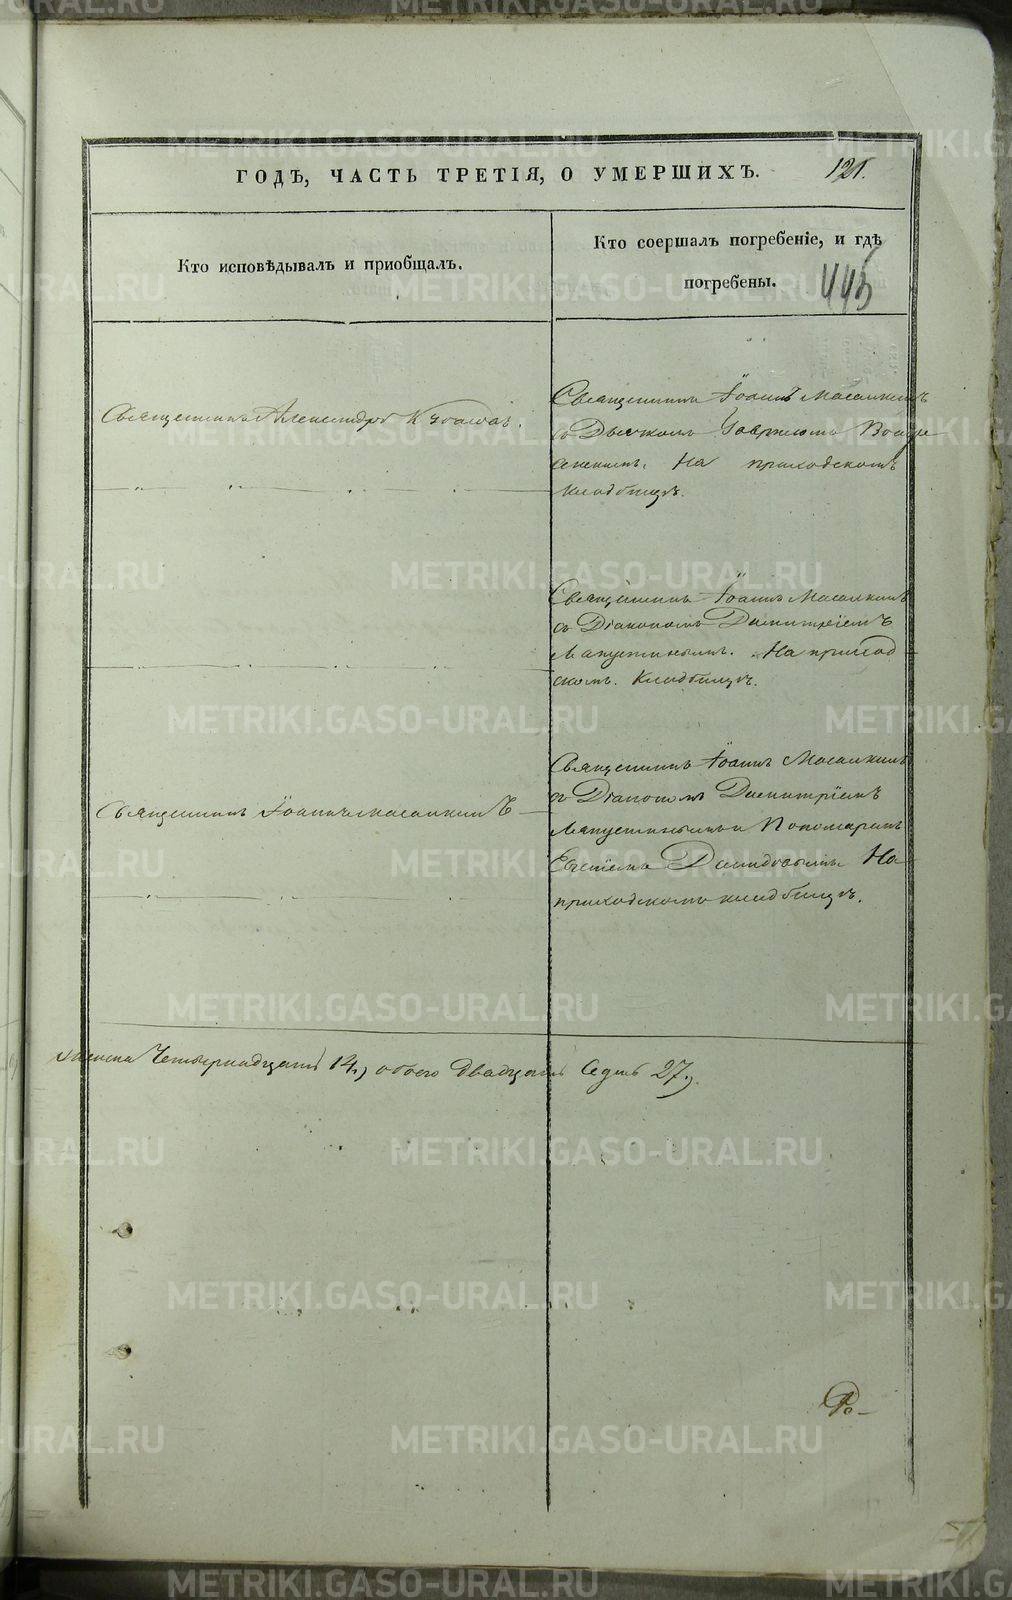 ГОДѢ, ЧАСТЬ ТРЕТІЯ, О УМЕРШИХЪ.
121.
Кто исповѣдывалъ и приобщалъ.
Кто соершалъ погребеніе, и гдѣ
погребены.
445
Священникъ Александръ
Священникъ Іоаннъ Масалкинъ
съ Дьячкомъ
На приходскомъ
кладбищѣ.
Священникъ Іоаннъ Масалкинъ
съ Діакономъ Димитріемъ
Лапустинымъ. На приход
скомъ кладбищѣ.
Священникъ Іоаннъ Масалкинъ
съ Діакономъ Димитріемъ
Лапустинымъ и Пономаремъ
На
приходскомъ кладбищѣ.
Священникъ Іоаннъ Масалкинъ
Женска Четырнадцать 14, обоего двадцать Седмь 27,
METRIKI.GASO-URAL.RU